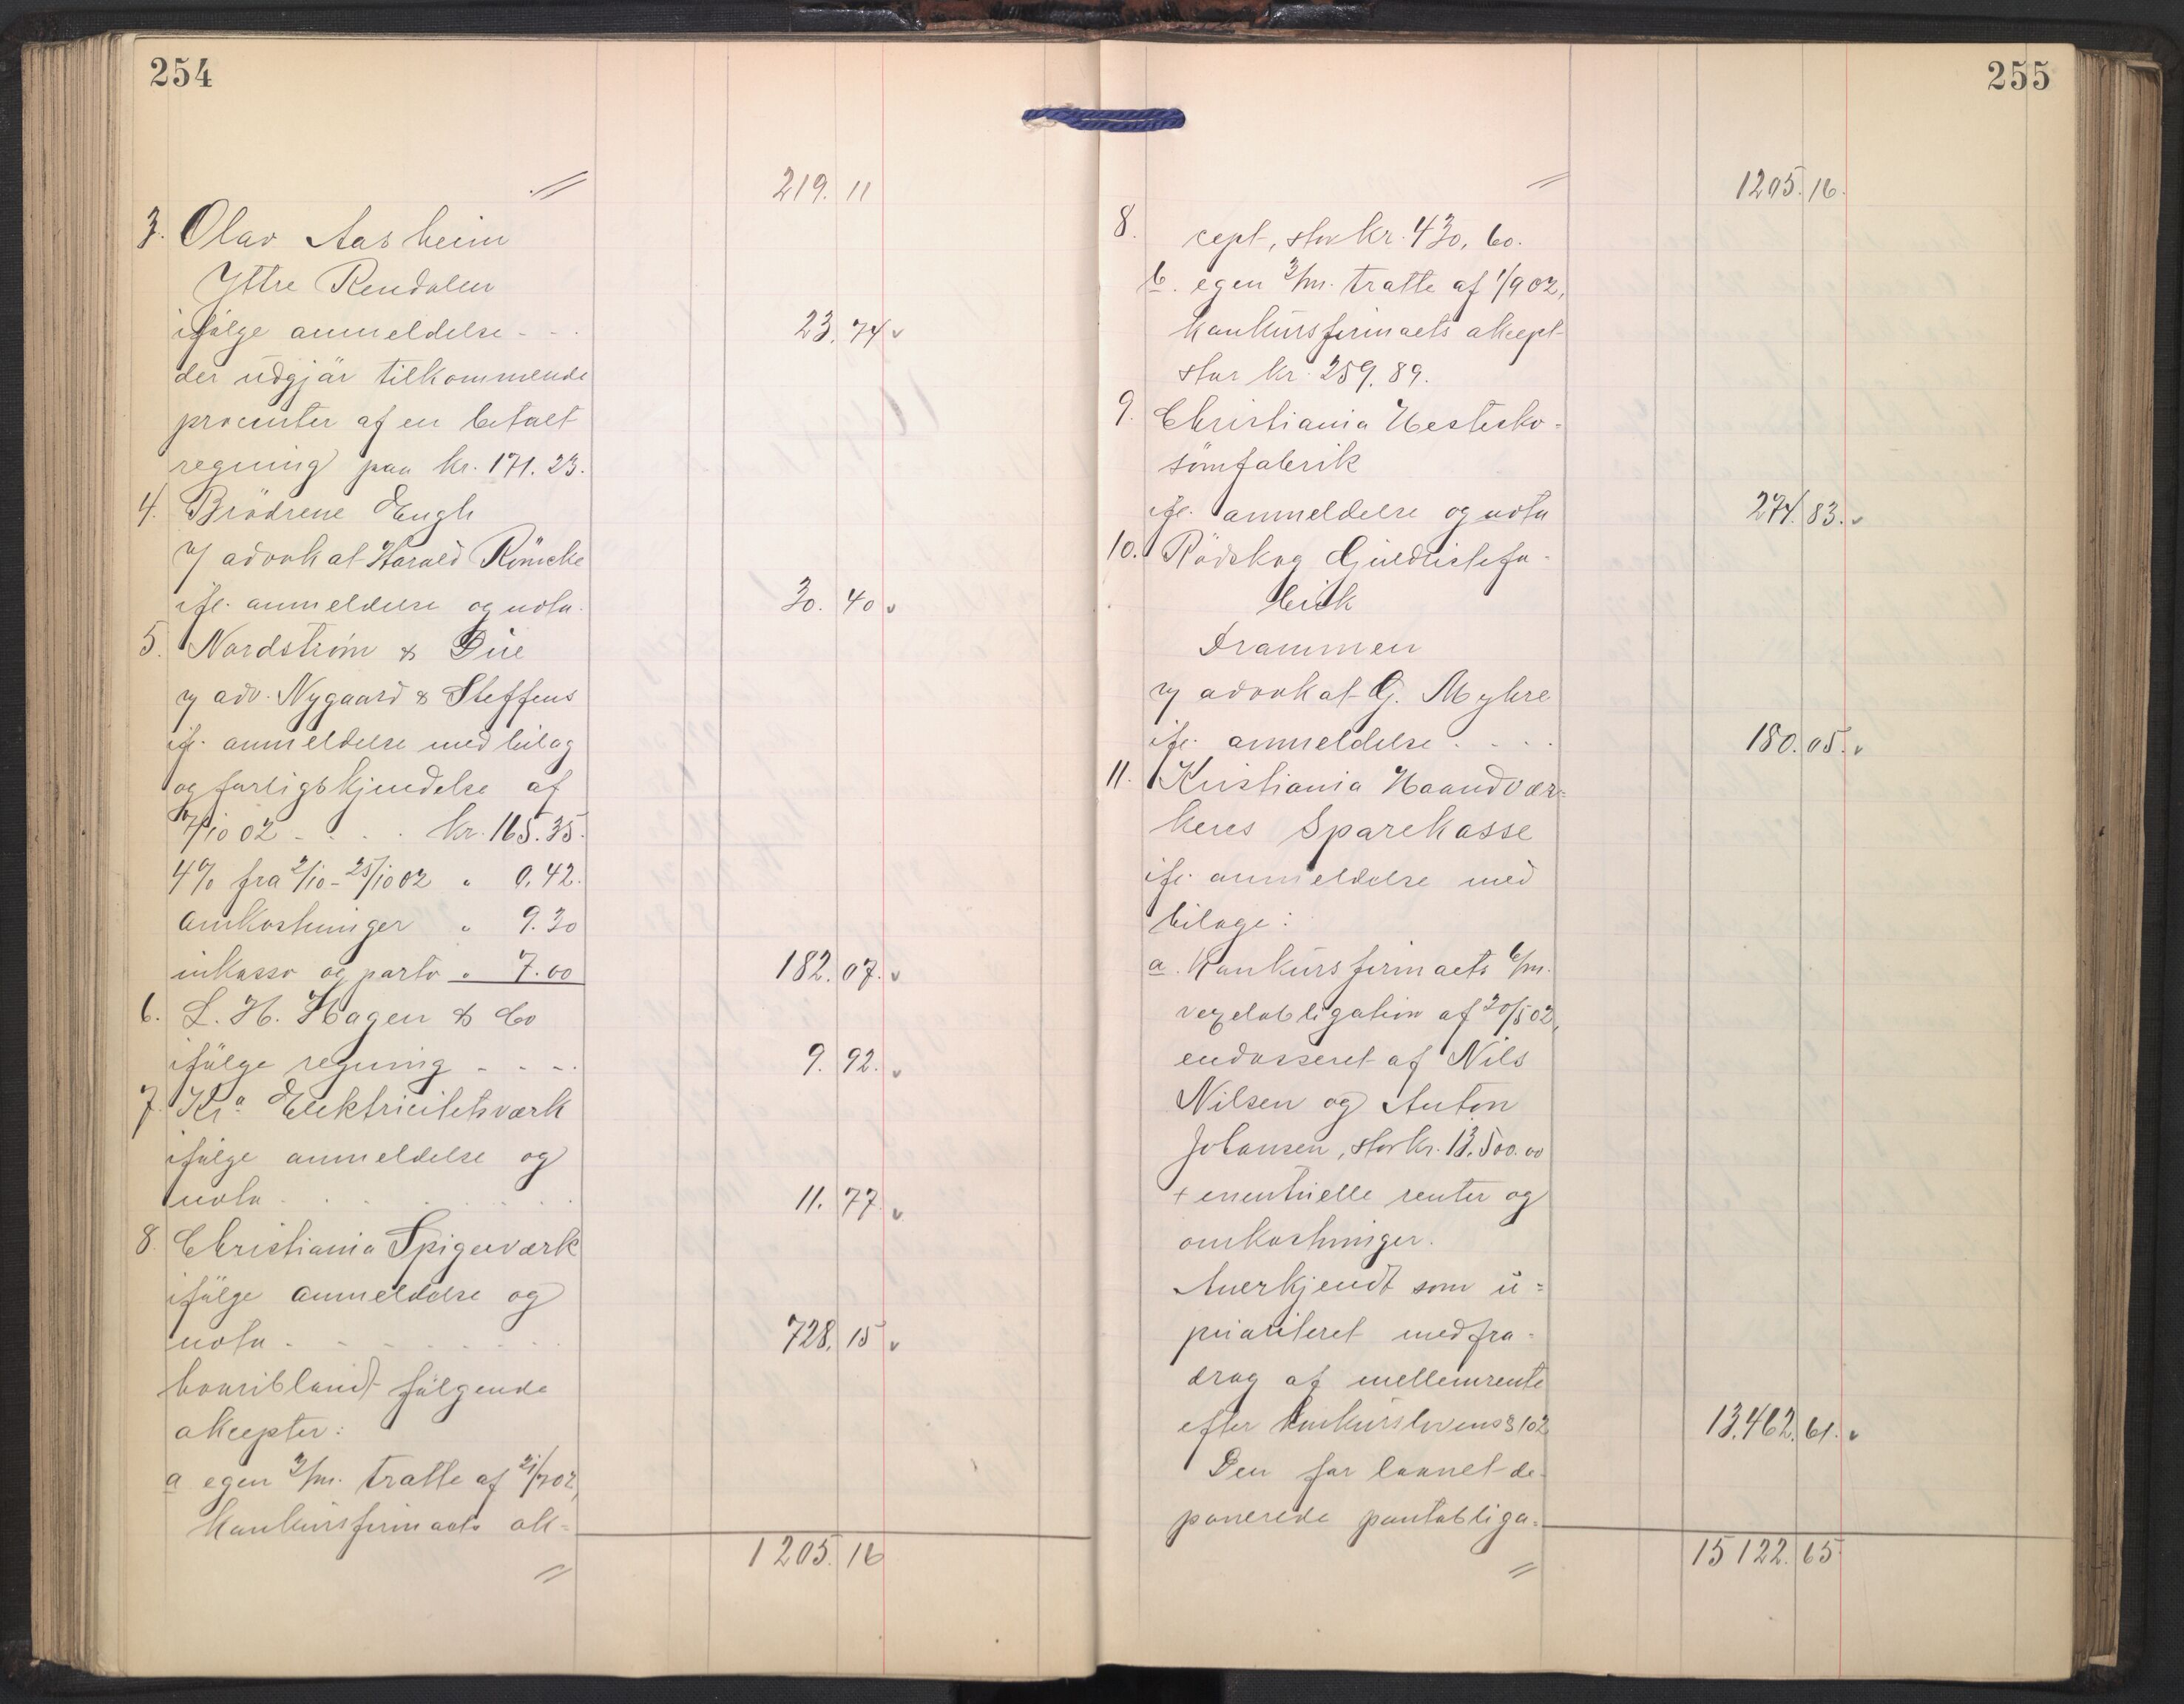 254
〃 219. 11
3. Olav Aasheim
Yttre Rendalen
ifølge anmeldelse - - . 23. 74 v
der udgjør tilkommende
procenter af en betalt
regning paa kr. 171. 23.
4. Brødrene Engh
v/ advokat Harald Rönneke
ifl. anmeldelse og nota. 30. 40 v
5. Nordström & Due
v/ adv. Nygaard & Steffens
ifl. anmeldelse med bilag
og forligskjendelse af
7/10 02 - . . . kr. 165.35.
4% fra 2/10 - 25/10 02 " 0.42.
omkostninger " 9.30
inkasso og porto " 7.00 182. 07. v
6. L. H. Hagen & Co
ifølge regning - - -. 9. 92. v
7. Kra Elektricitetsværk
ifølge anmeldelse og
nota . . . . . . 11. 77. v
8. Christiania Spigerværk
ifølge anmeldelse og
nota - - - - - . . 728. 15 v
hvoriblandt følgende
akcepter:
a egen 3/m. tratte af 21/7 02,
konkursfirmaets ak=
1205. 16
〃
255
〃 1205. 16.
8. cept, stor kr. 430, 60.
b. egen 3/m. tratte af 1/9 02,
konkursfirmaets akcept
stor kr. 259. 89.
9. Christiania Hestesko=
sömfabrik
ifl. anmeldelse og nota 274. 83. v
10. Rødskog Guldlistefa-
brik
Drammen
v/ advokat G. Myhre
ifl. anmeldelse . - . . 180. 05. v
11. Kristiania Haandvær=
keres Sparekasse
ifl. anmeldelse med
bilage:
a. Konkursfirmaets 6/m.
vexelobligation af 20/5 02,
endosseret af Nils
Nilsen og Anton
Johansen, stor kr. 13.500.00
+ eventuelle renter og
omkostninger.
Anerkjendt som u=
prioriteret med fra=
drag af mellemrente
efter konkurslovens § 102 13.462. 61. v
Den for laanet de-
ponerede pantobliga=
15122. 65
〃